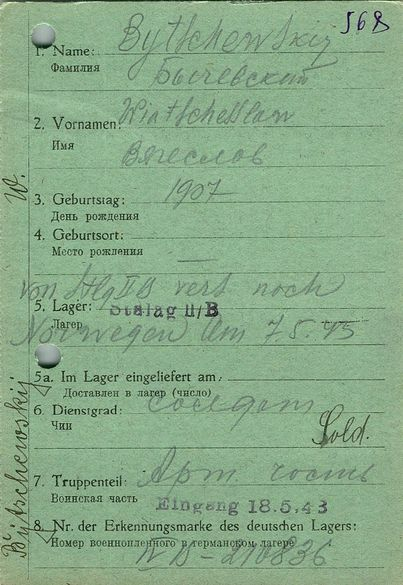 568
Bytschewskij
1. Name:
Фамилия
Бычевский
Wiatscheslaw
2. Vornamen:
Имя
Вячеслов
1907
3. Geburtstag:
День рождения
4. Geburtsort: —
Место рождения
von Stlg II B vers. nach
5. Lager: Stalag II/B
Лагер
Norwegen am 7.5.43
5a. Im Lager eingeliefert am:
Доставлен в лагер (число)
6. Dienstgrad: Солдат
Чин
Sold.
7. Truppenteil: Арт. часть
Воинская часть
Eingang 18.5.43
8. Nr. der Erkennungsmarke des deutschen Lagers:
Номер военнопленного в германском лагере
II B - 210836
Bytschewskij W.